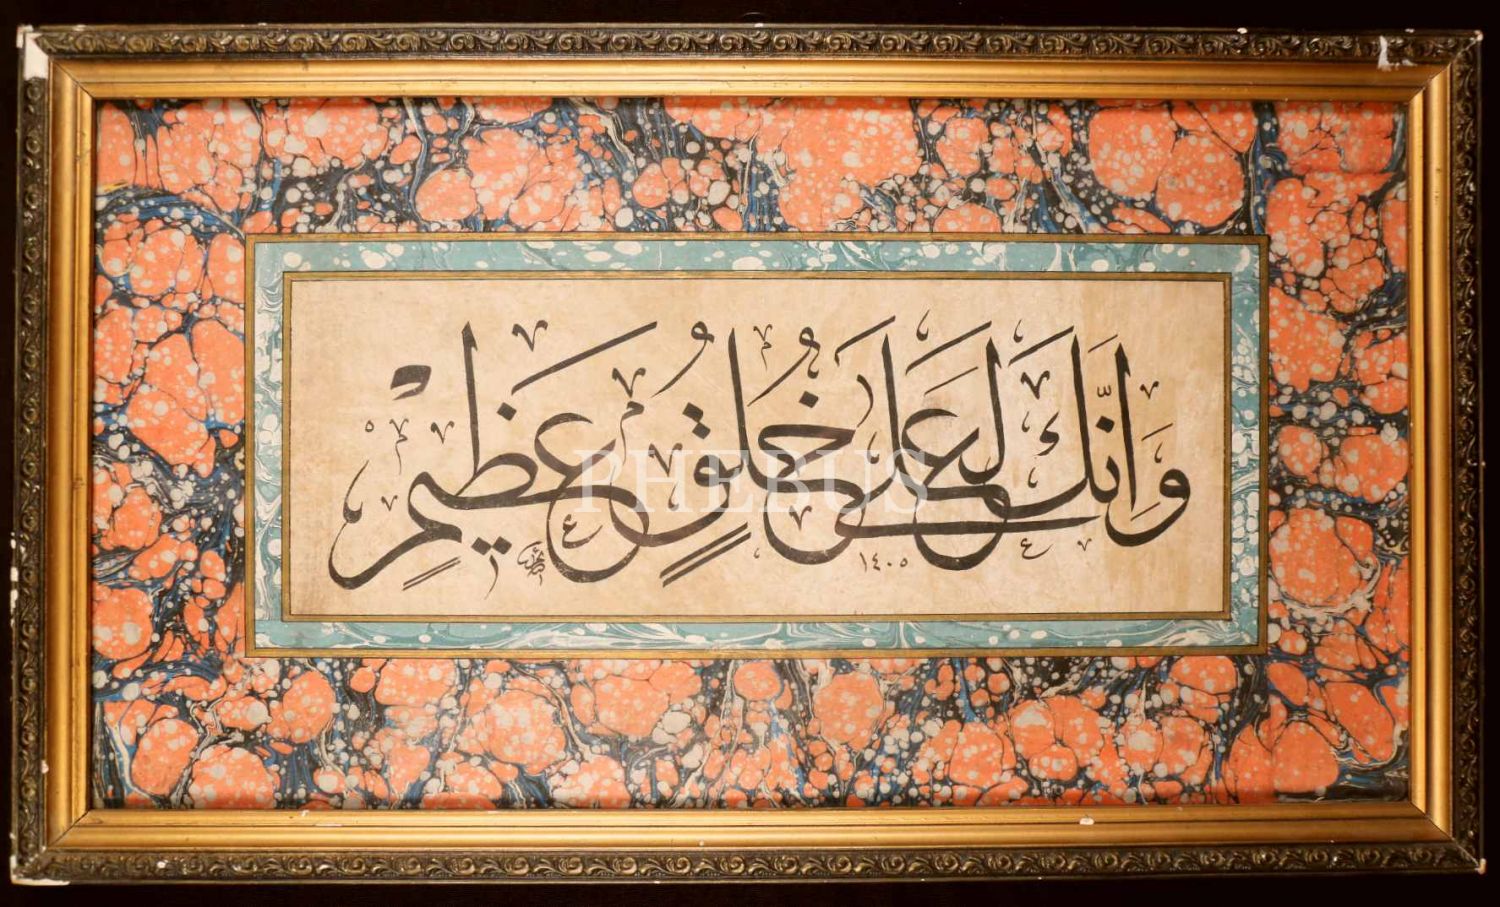 وَاِنَّكَ لَعَلٰى خُلُقٍ عَظِيمٍ
١٤٠٥
PHEBUS